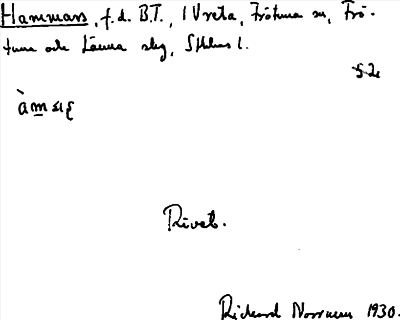 Hammars, f.d. B.T., i Vreta, Frötuna sn, Frö-
tuna och Länna slg, Sthlms l.
àmaʂ
Rivet.
Richard Norrman 1930.